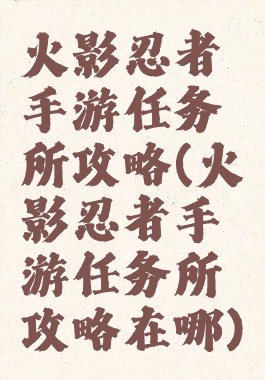 火影忍者
手游任务
所攻略(火
影忍者手
游任务所
攻略在哪)